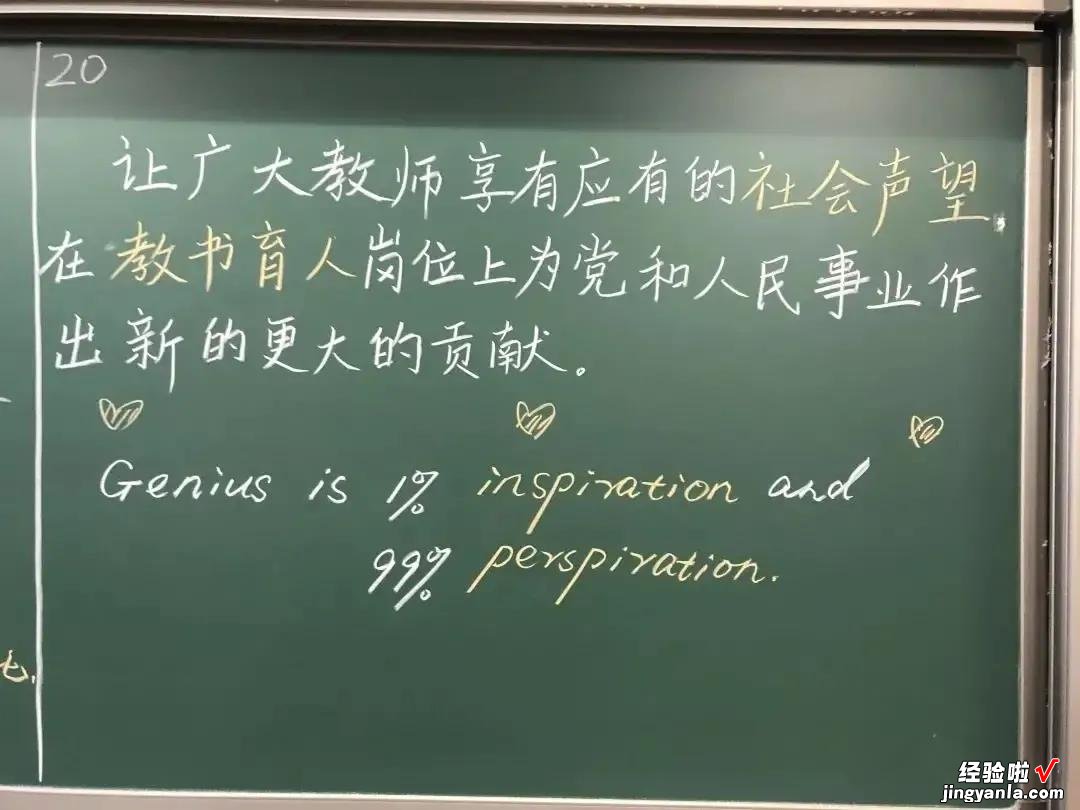 20
让广大教师享有应有的社会声望,
在教书育人岗位上为党和人民事业作
出新的更大的贡献。
Genius is 1% inspiration and
99% perspiration.
经验啦√
jingyanla.com